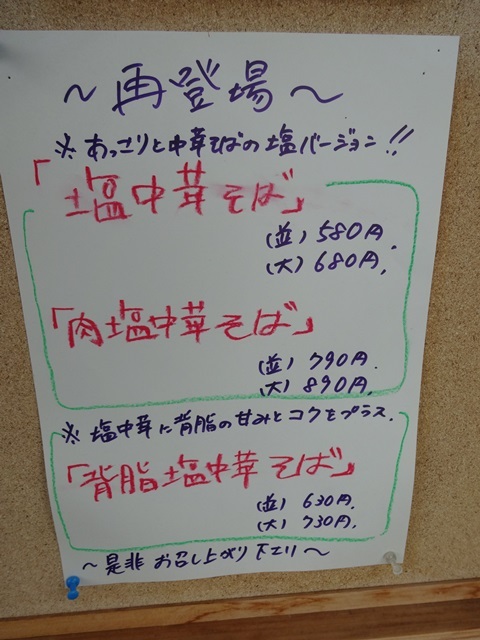 ～再登場～
※あっさりと中華そばの塩バージョン!!
「塩中華そば」
(並) 580円.
(大) 680円.
「肉塩中華そば」
(並) 790円.
(大) 890円.
※塩中華に背脂の甘みとコクをプラス.
「背脂塩中華そば」
(並) 630円.
(大) 730円.
～是非お召し上がり下エリ～